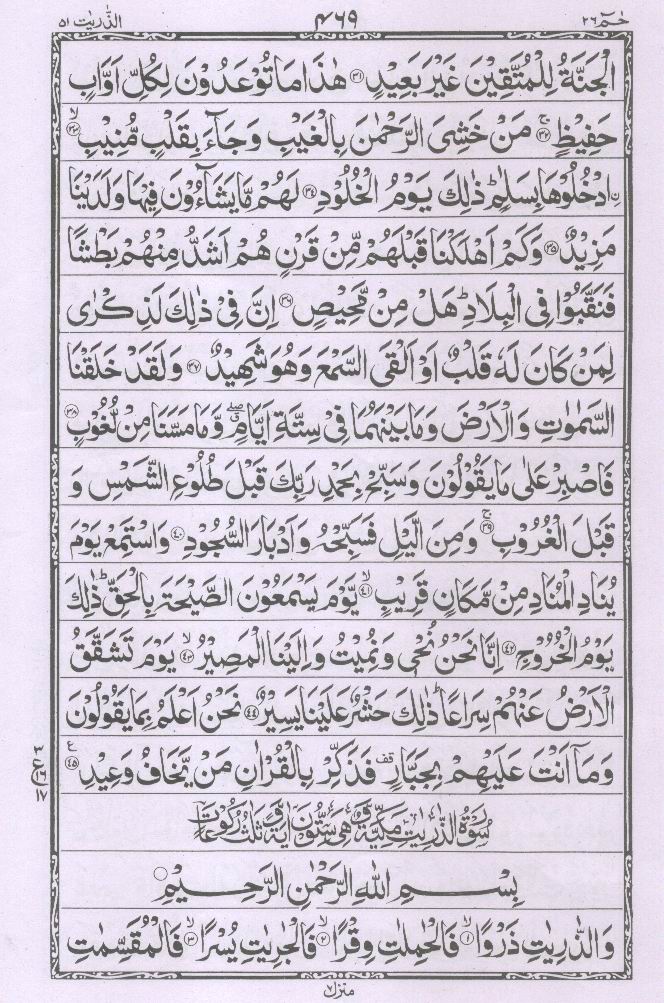 حٰمٓ ۲۶ ۴۶۹ الذّٰریٰت ۵۱
الْجَنَّةُ لِلْمُتَّقِیْنَ غَیْرَ بَعِیْدٍ ۳۱ هٰذَا مَا تُوْعَدُوْنَ لِكُلِّ اَوَّابٍ
حَفِیْظٍ ۚ ۳۲ مَنْ خَشِیَ الرَّحْمٰنَ بِالْغَیْبِ وَجَآءَ بِقَلْبٍ مُّنِیْبٍ ۙ ۳۳
ن ادْخُلُوْهَا بِسَلٰمٍ ؕ ذٰلِكَ یَوْمُ الْخُلُوْدِ ۳۴ لَهُمْ مَّا یَشَآءُوْنَ فِیْهَا وَلَدَیْنَا
مَزِیْدٌ ۳۵ وَكَمْ اَهْلَكْنَا قَبْلَهُمْ مِّنْ قَرْنٍ هُمْ اَشَدُّ مِنْهُمْ بَطْشًا
فَنَقَّبُوْا فِی الْبِلَادِ ؕ هَلْ مِنْ مَّحِیْصٍ ۳۶ اِنَّ فِیْ ذٰلِكَ لَذِكْرٰی
لِمَنْ كَانَ لَهٗ قَلْبٌ اَوْ اَلْقَی السَّمْعَ وَهُوَ شَهِیْدٌ ۳۷ وَلَقَدْ خَلَقْنَا
السَّمٰوٰتِ وَالْاَرْضَ وَمَا بَیْنَهُمَا فِیْ سِتَّةِ اَیَّامٍ ۖق وَّمَا مَسَّنَا مِنْ لُّغُوْبٍ ۳۸
فَاصْبِرْ عَلٰی مَا یَقُوْلُوْنَ وَسَبِّحْ بِحَمْدِ رَبِّكَ قَبْلَ طُلُوْعِ الشَّمْسِ وَ
قَبْلَ الْغُرُوْبِ ۚ ۳۹ وَمِنَ الَّیْلِ فَسَبِّحْهُ وَاَدْبَارَ السُّجُوْدِ ۴۰ وَاسْتَمِعْ یَوْمَ
یُنَادِ الْمُنَادِ مِنْ مَّكَانٍ قَرِیْبٍ ۙ ۴۱ یَّوْمَ یَسْمَعُوْنَ الصَّیْحَةَ بِالْحَقِّ ؕ ذٰلِكَ
یَوْمُ الْخُرُوْجِ ۴۲ اِنَّا نَحْنُ نُحْیٖ وَنُمِیْتُ وَاِلَیْنَا الْمَصِیْرُ ۙ ۴۳ یَوْمَ تَشَقَّقُ
الْاَرْضُ عَنْهُمْ سِرَاعًا ؕ ذٰلِكَ حَشْرٌ عَلَیْنَا یَسِیْرٌ ۴۴ نَحْنُ اَعْلَمُ بِمَا یَقُوْلُوْنَ
وَمَاۤ اَنْتَ عَلَیْهِمْ بِجَبَّارٍ قف فَذَكِّرْ بِالْقُرْاٰنِ مَنْ یَّخَافُ وَعِیْدِ ع ۴۵
۳ ع ۱۶ ۱۷
سُوْرَةُ الذّٰرِیٰتِ مَكِّیَّةٌ وَّهِیَ سِتُّوْنَ اٰیَةً وَّثَلٰثُ رُكُوْعَاتٍ
بِسْمِ اللهِ الرَّحْمٰنِ الرَّحِیْمِ
وَالذّٰرِیٰتِ ذَرْوًا ۙ ۱ فَالْحٰمِلٰتِ وِقْرًا ۙ ۲ فَالْجٰرِیٰتِ یُسْرًا ۙ ۳ فَالْمُقَسِّمٰتِ
منزل ۷